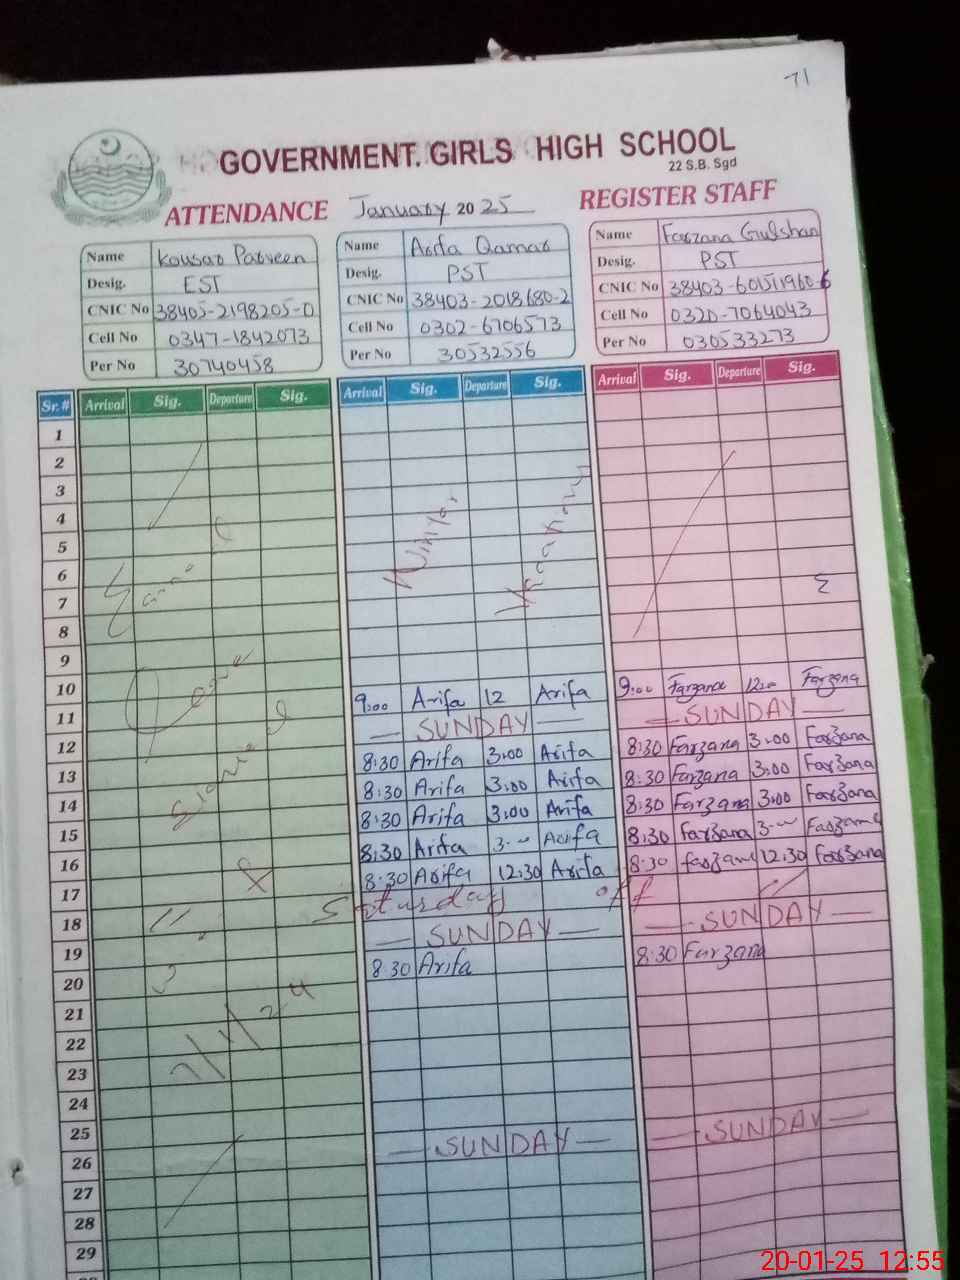 71
GOVERNMENT. GIRLS HIGH SCHOOL
22 S.B. Sgd
ATTENDANCE January 2025 REGISTER STAFF
Name Kousar Parveen
Desig. EST
CNIC No 38405-2198205-0
Cell No 0347-1842073
Per No 30740458
Name Arifa Qamar
Desig. PST
CNIC No 38403-2018680-2
Cell No 0302-6706573
Per No 30532556
Name Farzana Gulshan
Desig. PST
CNIC No 38403-60151960-6
Cell No 0320-7064043
Per No 030533273
Sr.# Arrival Sig. Departure Sig. Arrival Sig. Departure Sig. Arrival Sig. Departure Sig.
1
2
3
4
5
6
7
8
9
10 9:00 Arifa 12 Arifa 9:00 Farzana 12:00 Farzana
11 SUNDAY SUNDAY
12 8:30 Arifa 3:00 Arifa 8:30 Farzana 3:00 Farzana
13 8:30 Arifa 3:00 Arifa 8:30 Farzana 3:00 Farzana
14 8:30 Arifa 3:00 Arifa 8:30 Farzana 3:00 Farzana
15 8:30 Arifa 3:00 Arifa 8:30 Farzana 3:00 Farzana
16 8:30 Arifa 12:30 Arifa 8:30 Farzana 12:30 Farzana
17 Saturday off
18 SUNDAY SUNDAY
19 8:30 Arifa 8:30 Farzana
20
21
22
23
24
25 SUNDAY SUNDAY
26
27
28
29
Winter
20-01-25 12:55